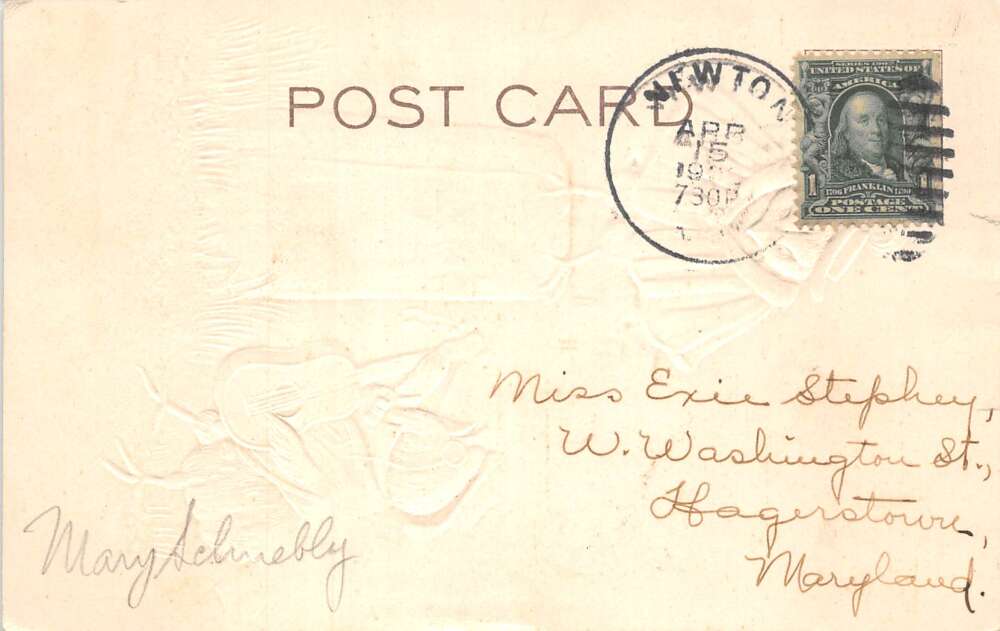 POST CARD
NEWTON
APR
15
19
730P
SERIES 1902
UNITED STATES OF
AMERICA
1 1706 FRANKLIN 1790 1
POSTAGE
ONE CENT
Miss Exie Stephey,
W. Washington St.,
Hagerstown,
Maryland.
Mary Schnebly